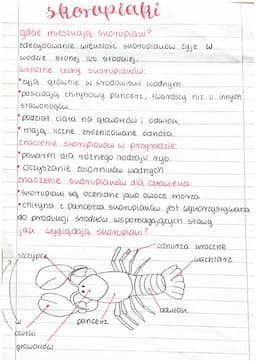 skorupiaki
gdzie mieszkają skorupiaki?
zdecydowanie większość skorupiaków żyje w
wodzie słonej lub słodkiej.
wspólne cechy skorupiaków:
•żyją głównie w środowisku wodnym.
•posiadają chitynowy pancerz, twardszy niż u innych
stawonogów.
•podział ciała na głowotłów i odwłok.
•mają liczne zróżnicowane odnóża.
znaczenie skorupiaków w przyrodzie:
•pokarm dla różnego rodzaju ryb.
•oczyszczanie zbiorników wodnych.
znaczenie skorupiaków dla człowieka:
•skorupiaki są cenione jako owoce morza
•chityna z pancerza skorupiaków jest wykorzystywana
do produkcji środków wspomagających stawy
jak wyglądają skorupiaki?
odnóża kroczne
szczypce
wachlarz
odwłok
pancerz
czułki
głowotłów